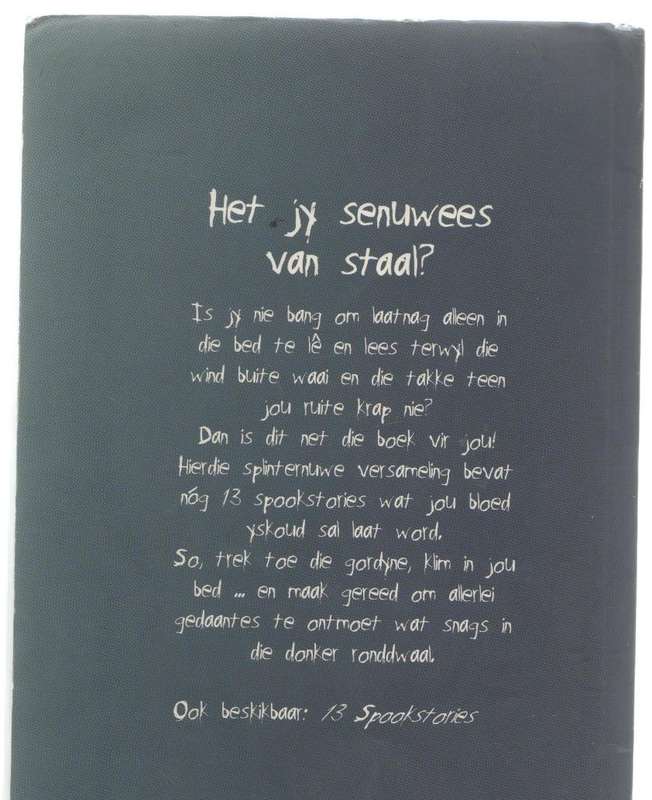 Het jy senuwees
van staal?
Is jy nie bang om laatnag alleen in
die bed te lê en lees terwyl die
wind buite waai en die takke teen
jou ruite krap nie?
Dan is dit net die boek vir jou!
Hierdie splinternuwe versameling bevat
nóg 13 spookstories wat jou bloed
yskoud sal laat word.
So, trek toe die gordyne, klim in jou
bed ... en maak gereed om allerlei
gedaantes te ontmoet wat snags in
die donker ronddwaal.
Ook beskikbaar: 13 Spookstories